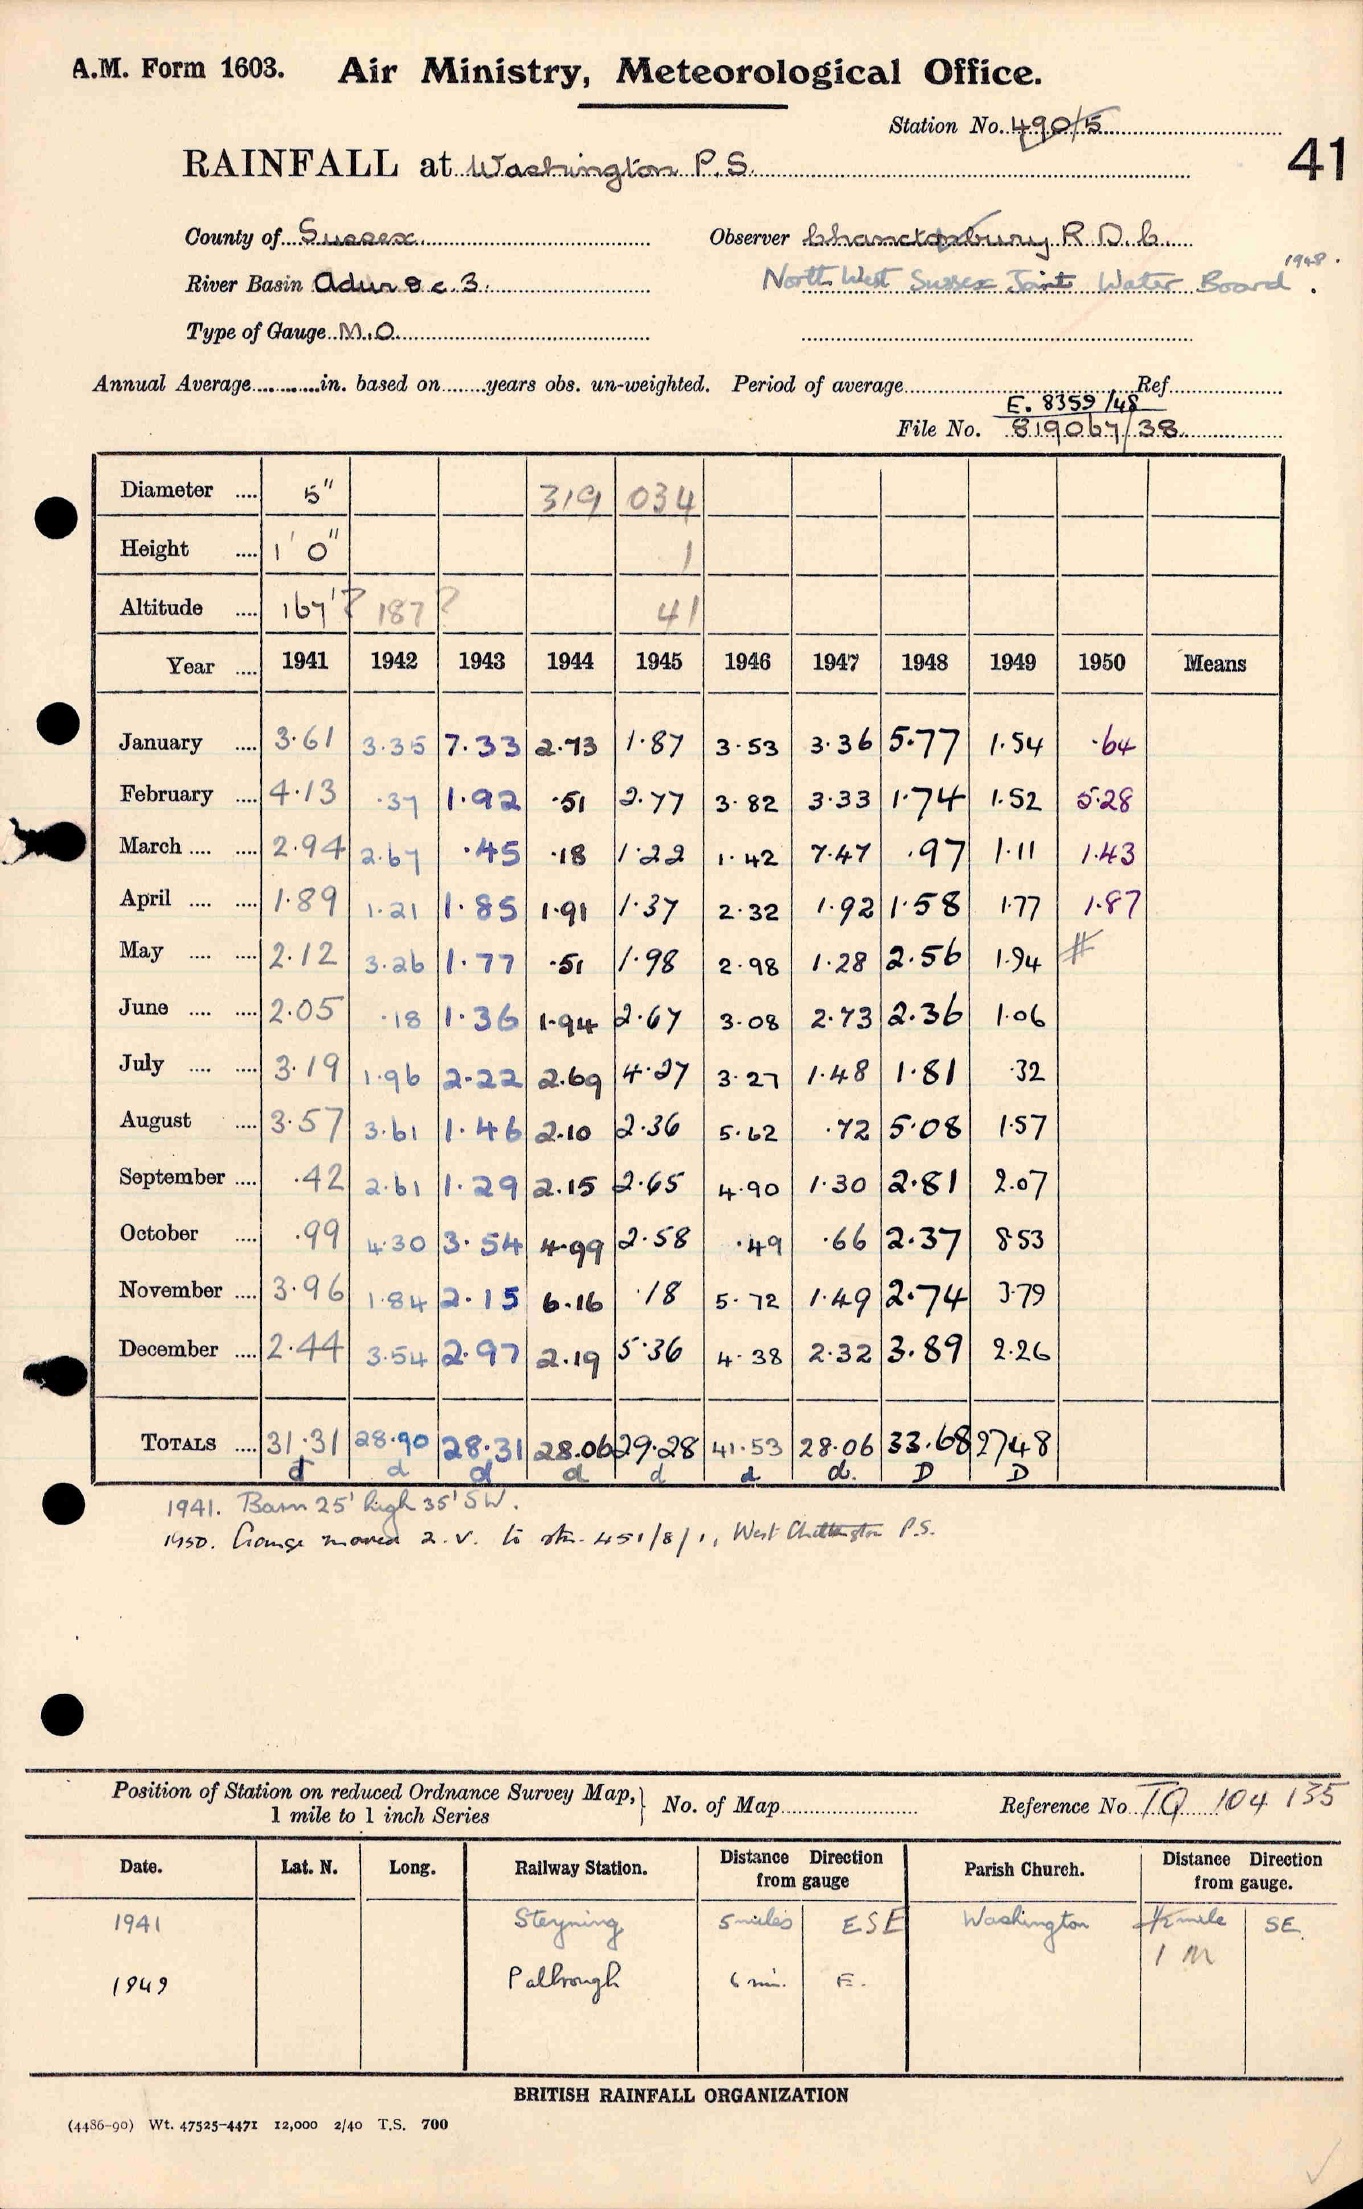 A.M. Form 1603. Air Ministry, Meteorological Office.
Station No. 490/5
41
RAINFALL at Washington P.S.
County of Sussex Observer Chanctonbury R.D.C.
River Basin Adur 8 c. 3. North West Sussex Joint Water Board 1948.
Type of Gauge M.O.
Annual Average in. based on years obs. un-weighted. Period of average Ref
E. 8359/48
File No. 819067/38
Diameter .... 5" 319 034
Height .... 1' 0" 1
Altitude .... 167'? 187? 41
Year .... 1941 1942 1943 1944 1945 1946 1947 1948 1949 1950 Means
January .... 3.61 3.35 7.33 2.73 1.87 3.53 3.36 5.77 1.54 .64
February .... 4.13 .37 1.92 .51 2.77 3.82 3.33 1.74 1.52 5.28
March .... .... 2.94 2.67 .45 .18 1.22 1.42 7.47 .97 1.11 1.43
April .... .... 1.89 1.21 1.85 1.91 1.37 2.32 1.92 1.58 1.77 1.87
May .... .... 2.12 3.26 1.77 .51 1.98 2.98 1.28 2.56 1.94 #
June .... .... 2.05 .18 1.36 1.94 2.67 3.08 2.73 2.36 1.06
July .... .... 3.19 1.96 2.22 2.69 4.27 3.27 1.48 1.81 .32
August .... 3.57 3.61 1.46 2.10 2.36 5.62 .72 5.08 1.57
September .... .42 2.61 1.29 2.15 2.65 4.90 1.30 2.81 2.07
October .... .99 4.30 3.54 4.99 2.58 .49 .66 2.37 8.53
November .... 3.96 1.84 2.15 6.16 .18 5.72 1.49 2.74 3.79
December .... 2.44 3.54 2.97 2.19 5.36 4.38 2.32 3.89 2.26
TOTALS .... 31.31 28.90 28.31 28.06 29.28 41.53 28.06 33.68 27.48
d d d d d d d. D D
1941. Barn 25' high 35' SW.
1950. Gauge moved 2.V. to stn. 451/8/1, West Chiltington P.S.
Position of Station on reduced Ordnance Survey Map, 1 mile to 1 inch Series } No. of Map Reference No TQ 104 135
Date. Lat. N. Long. Railway Station. Distance Direction from gauge Parish Church. Distance Direction from gauge.
1941 Steyning 5 miles ESE Washington ½ mile SE.
1 M
1949 Pulborough 6 mi. E.
BRITISH RAINFALL ORGANIZATION
(4486-90) Wt. 47525-4471 12,000 2/40 T.S. 700